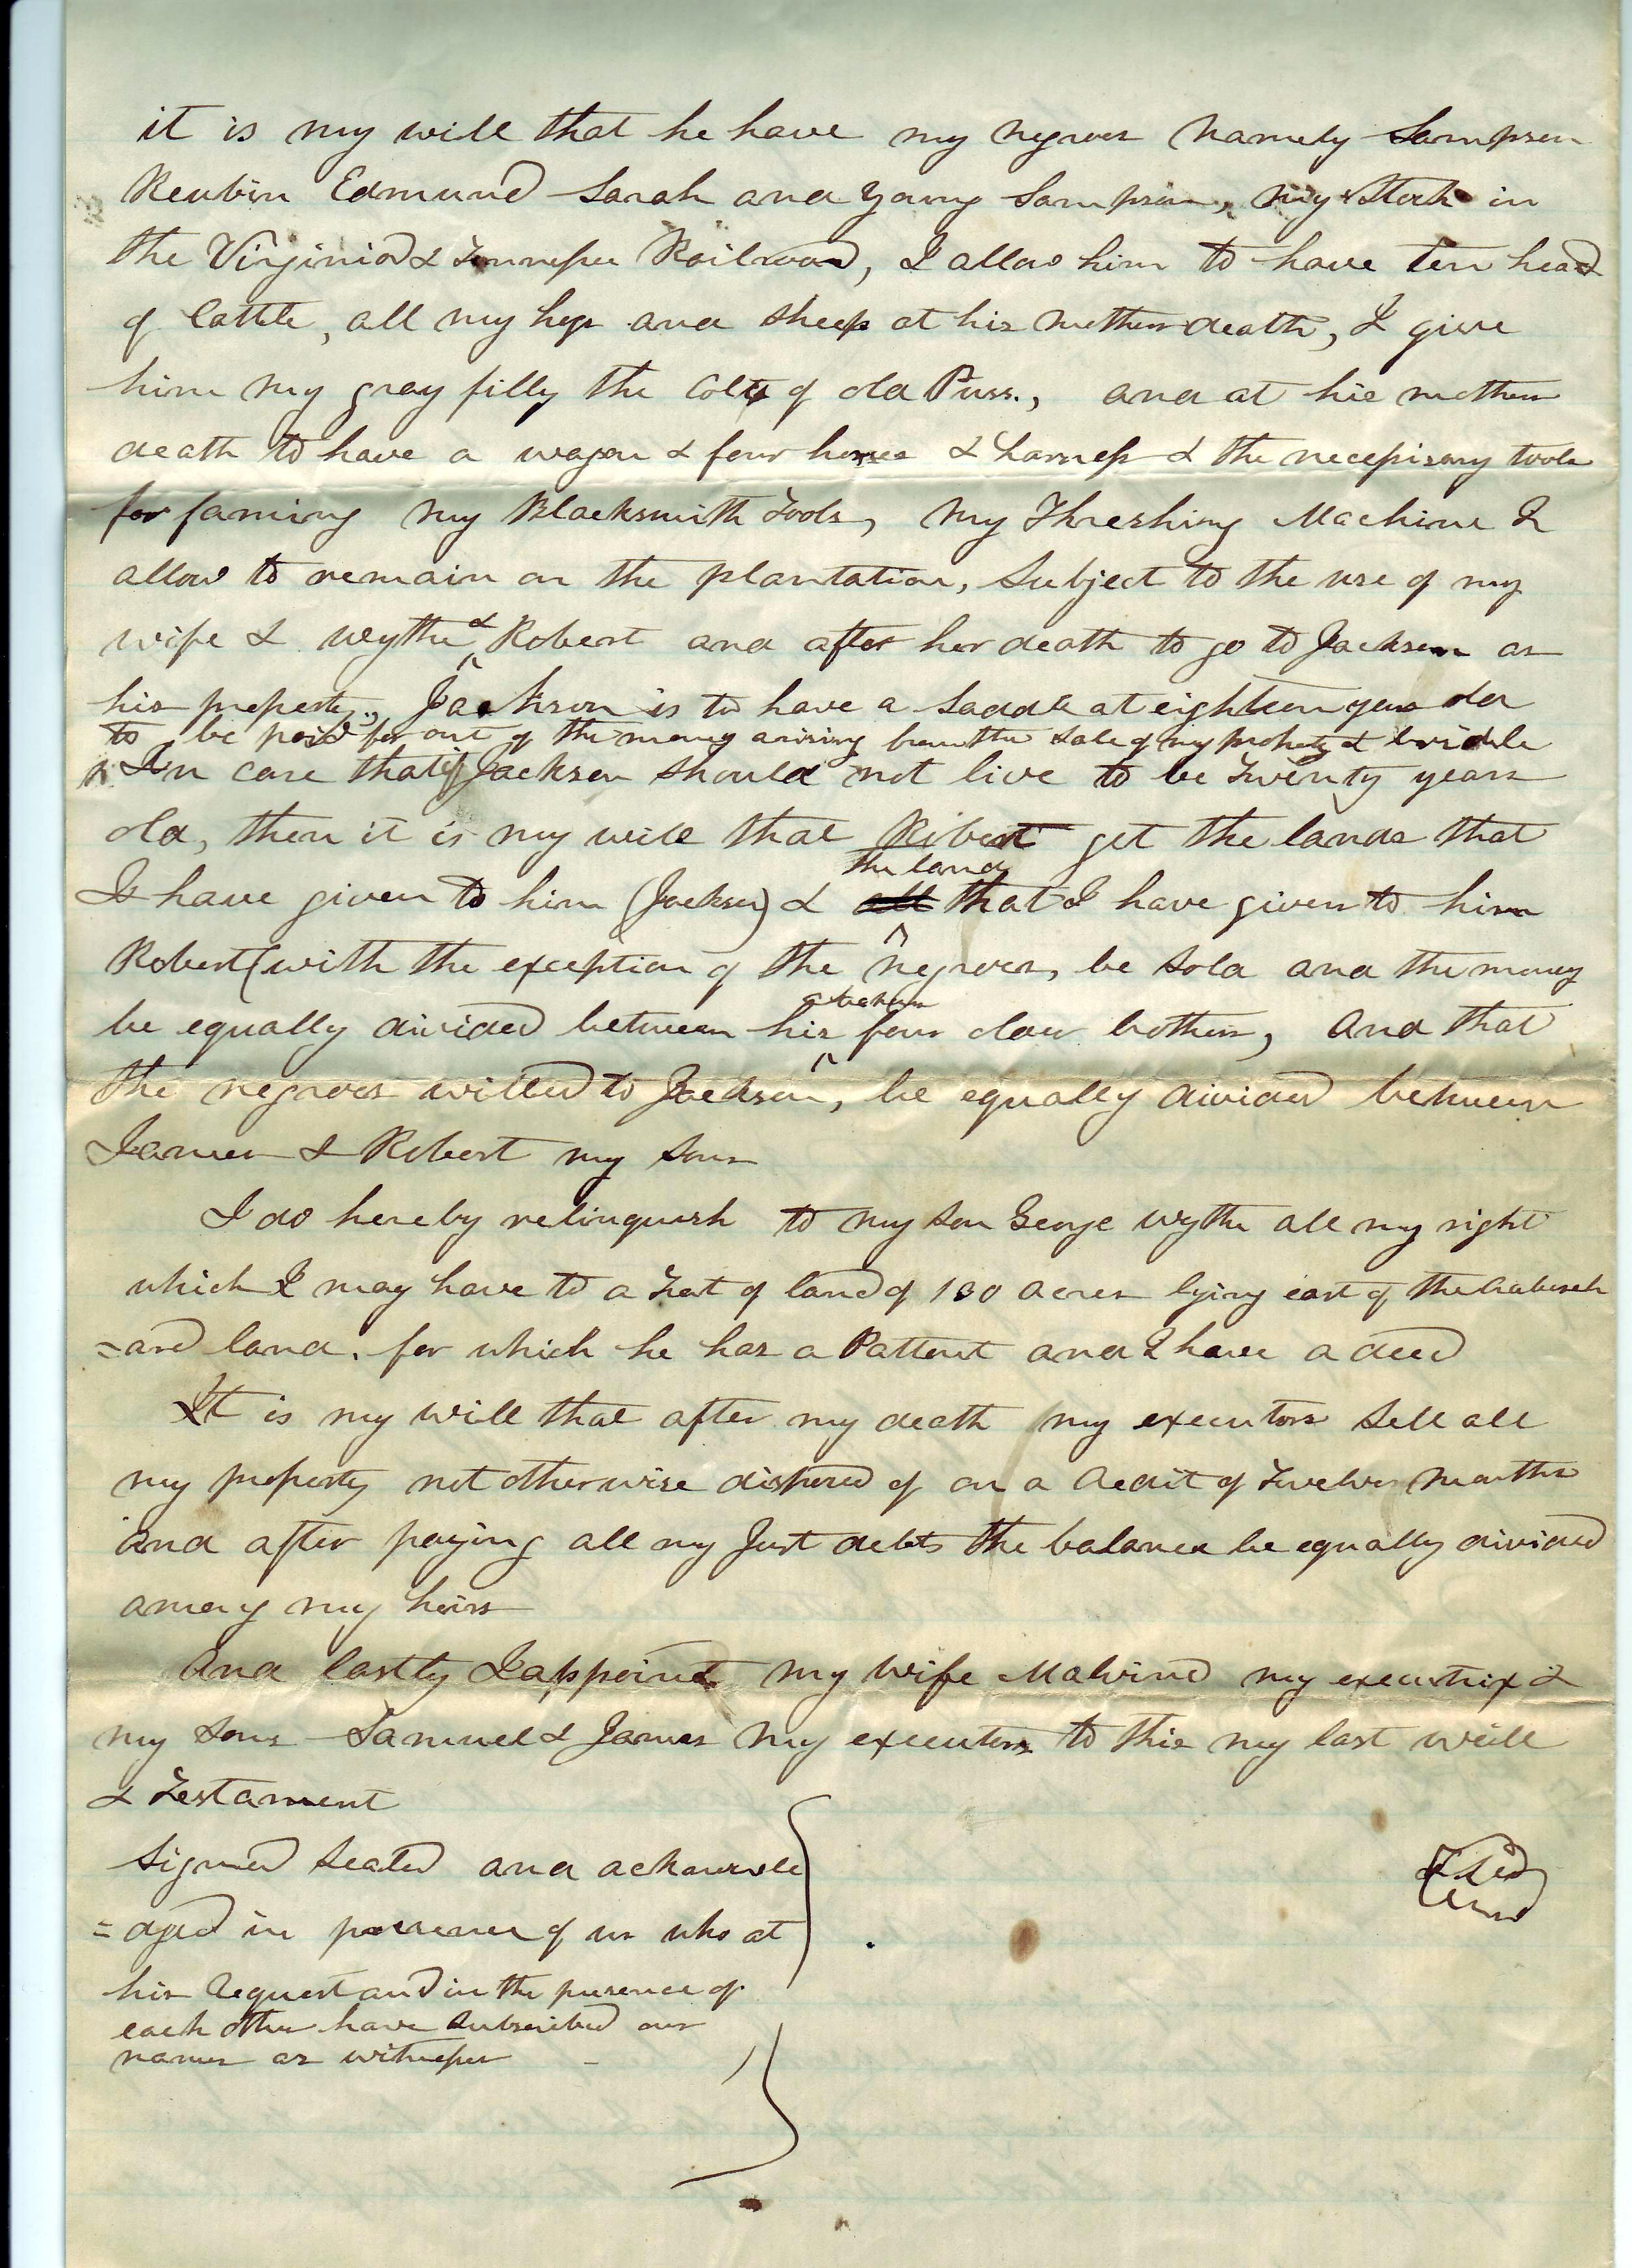 it is my will that he have my negroes namely Sampson
Reubin Edmund Sarah and Young Sampson, my Stock in
the Virginia & Tennessee Railroad, I allow him to have ten head
of Cattle, all my hogs and sheep at his mothers death, I give
him my gray filly the Colt of old Puss., and at his mothers
death to have a wagon & four horses & harness & the necessary tools
for farming my Blacksmith Tools, My Threshing Machine I
allow to remain on the plantation, Subject to the use of my
wife & Wythe & Robert and after her death to go to Jackson as
his property., Jackson is to have a Saddle at eighteen years old
to be paid for out of the money arising from the sale of my property & bridle
In case that if Jackson should not live to be Twenty years
old, then it is my will that Robert get the lands that
I have given to him (Jackson) & all that I have given to him
the land
Robert (with the exception of the negroes, be sold and the money
be equally divided between his four older brothers, And that
the negroes willed to Jackson, be equally divided between
James & Robert my sons
I do hereby relinquish to my son George Wythe all my right
which I may have to a Tract of land of 130 acres lying east of the
=ard land. for which he has a Pattent and I have a deed
It is my will that after my death my executors Sell all
my property not otherwise disposed of on a Credit of Twelve Months
and after paying all my Just debts the balance be equally divided
among my heirs
And lastly I appoint my Wife Malvina my executrix &
my Sons Samuel & James my executors to this my last will
& Testament
Signed Sealed and acknowle
=dged in presence of us who at
his Request and in the presence of
each other have Subscribed our
names as witnesses